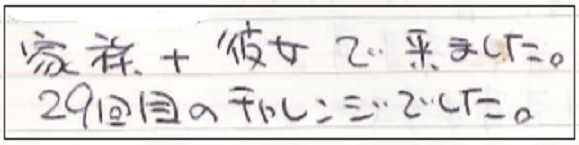 家族+彼女で来ました。
29回目のチャレンジでした。